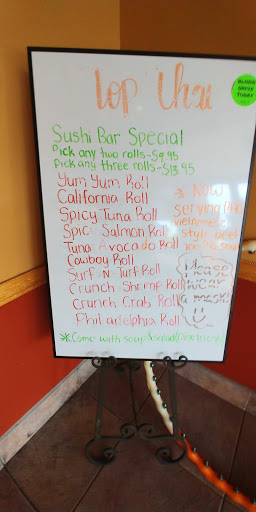 Top Thai
Sushi Bar Special
Pick any two rolls-$9.95
Pick any three rolls-$13.95
Yum Yum Roll
California Roll
Spicy Tuna Roll
Spicy Salmon Roll
Tuna Avocado Roll
Cowboy Roll
Surf-N-Turf Roll
Crunch Shrimp Roll
Crunch Crab Roll
Philadelphia Roll
* NOW
Serving Pho
Vietnamese
Style beef
noodle soup
Please
wear
a mask!
*Come with soup & salad (Dine in only)